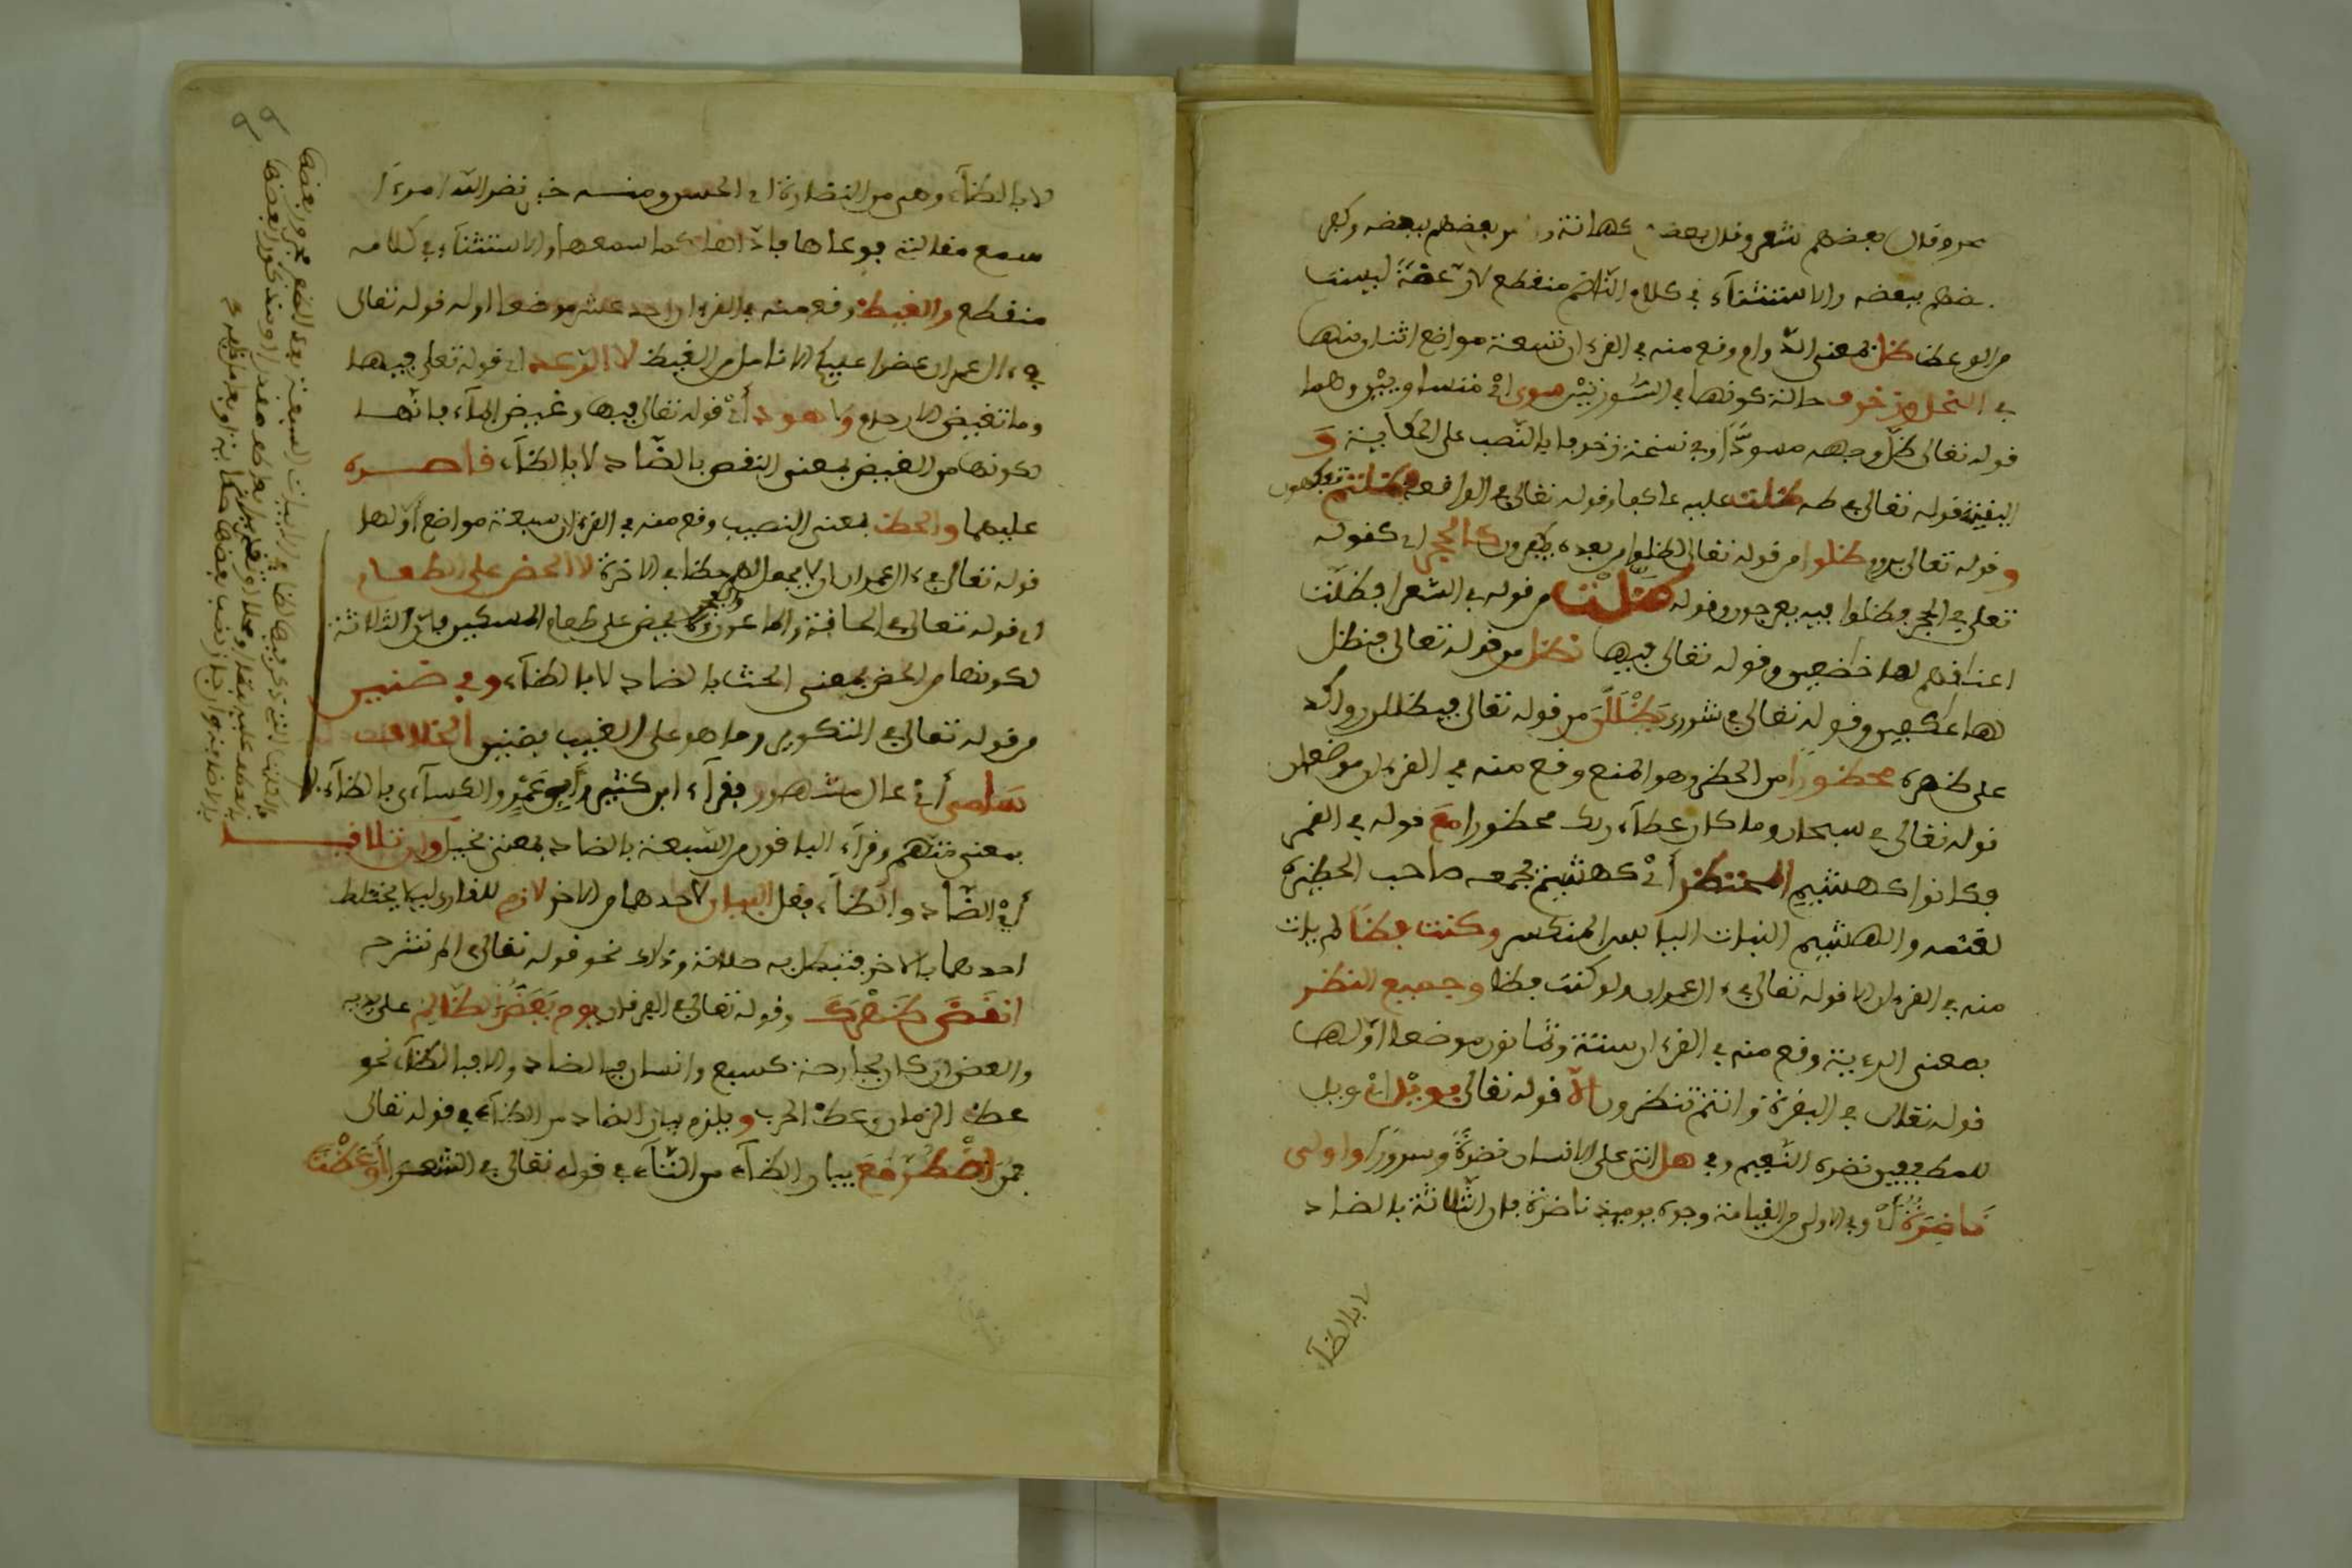 سحر وقال بعضهم شعر وقال بعضهم كهانة و من بعضهم ببعضه وكفر
بعضهم ببعضه والاستثناء في كلام الناظم منقطع لان عضة ليست
من الوعظ ظل بمعنى الدوام وقع منه في القرءان تسعة مواضع اثنان منها
في النحل وزخرف حالة كونهما في السورتين سوى اي متساويين وهما
قوله تعالى ظل وجهه مسودا وفي نسخة زخرفا بالنصب على الحكاية و
البقية قوله تعالى في طه ظلت عليه عاكفا وقوله تعالى في الواقعة فظلتم تفكهون
وقوله تعالى بروم ظلوا من قوله تعالى لظلوا من بعده يكفرون كالحجر اي كقوله
تعلى في الحجر فظلوا فيه يعرجون وقوله ظلت من قوله في الشعرا فظلت
اعناقهم لها خاضعين وقوله تعالى فيها نظل من قوله تعالى فنظل
لها عاكفين وقوله تعالى في شورى يظللن من قوله تعالى فيظللن رواكد
على ظهره محظورا من الحظر وهو المنع وقع منه في القرءان موضعان
قوله تعالى في سبحان وما كان عطاء ربك محظورا مع قوله في القمر
فكانوا كهشيم المحتظر أي كهشيم يجمعه صاحب الحظيرة
لغنمه والهشيم النبات اليابس المنكسر وكنت فظا لم يات
منه في القرءان الا قوله تعالى في ءال عمران ولو كنت فظا وجميع النظر
بمعنى الرءية وقع منه في القرءان ستة وثمانون موضعا اولها
قوله تعالى في البقرة وانتم تنظرون الا قوله تعالى بويل اي في ويل
للمطففين نضرة النعيم وفي هل اتى على الانسان نضرة وسرورا واولى
ناضرة أي وفي الاولى من القيامة وجوه يومئذ ناضرة فان الثلاثة بالضاد
لا بالظاء
لا بالظاء وهي من النضارة اي الحسن ومنه خبر نضر الله امرءا
سمع مقالتي فوعاها فاداها كما سمعها والاستثناء في كلامه
منقطع والغيظ وقع منه في القرءان احد عشر موضعا اوله قوله تعالى
في ءال عمران عضوا عليكم الانامل من الغيظ لا الرعد اي قوله تعلى فيها
وما تغيض الارحام ولا هود أي قوله تعالى فيها وغيض الماء فانهما
لكونهما من الغيض بمعنى النقص بالضاد لا بالظاء قاصره
عليهما والحظ بمعنى النصيب وقع منه في القرءان سبعة مواضع أولها
قوله تعالى في ءال عمران ان لا يجعل لهم حظا في الاخرة لا الحض على الطعام
اي قوله تعالى في الحاقة والماعون ولا يحض على طعام المسكين فان الثلاثة
لكونها من الحض بمعنى الحث بالضاد لا بالظاء وفي ضنين
من قوله تعالى في التكوير وما هو على الغيب بضنين الخلاف
سامى أي عال مشهور فقرأه ابن كثير وأبو عمرو والكسائي بالظاء
بمعنى متهم وقرأه الباقون من السبعة بالضاد بمعنى بخيل وان تلاقيا
أي الضاد والظاء فقل البيان لاحدهما من الاخر لازم للقاري ليلا يختلط
احدهما بالاخر فتبطل به صلاته وذلك نحو قوله تعالى الم نشرح
انقض ظهرك وقوله تعالى في الفرقان يوم يعض الظالم على يديه
والعض ان كان بجارحة كسبع وانسان فبالضاد والا فبالظاء نحو
عظ الزمان وعظ الحرب ويلزم بيان الضاد من الطاء في قوله تعالى
فمن اضطر مع بيان الظاء من التاء في قوله تعالى في الشعرا أوعظت